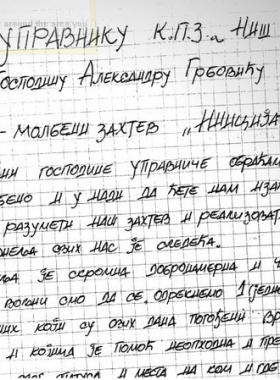 around the area you
УПРАВНИКУ К.П.З-а НИШ
Господину Александру Грбовићу
- МОЛБЕНИ ЗАХТЕВ „ИНИЦИЗА
НИ ГОСПОДИНЕ УПРАВНИЧЕ ОБРАЋАМ
БЕНО И У НАДИ ДА ЋЕТЕ НАМ ИЗАЋ
РАЗУМЕТИ НАШ ЗАХТЕВ И РЕАЛИЗОВАТ
ЖЕЉА ОВИХ НАС ЈЕ СЛЕДЕЋА.
ЉА ЈЕ СКРОМНА ДОБРОНАМЕРНА И
ВОЉНИ СМО ДА СЕ ОДРЕКНЕМО 1 ЈЕДН
ШИХ КОЈИ СУ ОВИХ ДАНА ПОГОЂЕНИ
И КОЈИМА ЈЕ ПОМОЋ НЕОПХОДНА И ПРЕ
И МЕСТА НА КОМ И ГДЕ